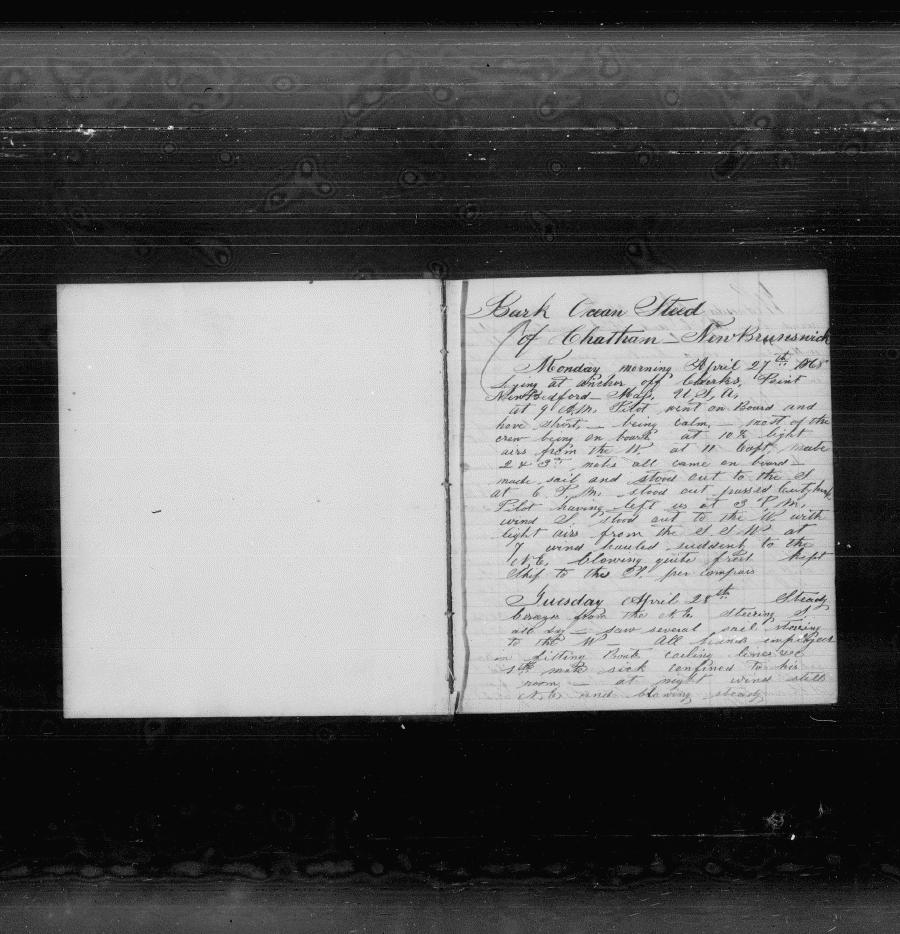 Bark Ocean Steed
of Chatham – New Brunswick
Monday morning April 27th 1868
Lying at anchor off Clarks, Point
New Bedford – Mass, U, S, A,
at 9 A.M. Pilot went on Board and
hove short, – being calm, – most of the
crew being on board at 10½ light
airs from the W. at 11 Capt, mate
2 & 3rd mates all came on board –
made sail and stood out to the S
at 6 P, M, stood out passed
Pilot having left us at 3 P, M,
wind S, stood out to the W. with
light airs from the S S W. at
7 wind hauled suddenly to the
N, E, blowing quite fresh kept
Ship to the per compass
Tuesday April 28th Steady
breezes from the N.E. steering S
all day – saw several sail steering
to the W – All hands employed
in fitting Boats coiling lines &c
1st mate sick confined to his
room – at night wind still
N, E, and blowing steady